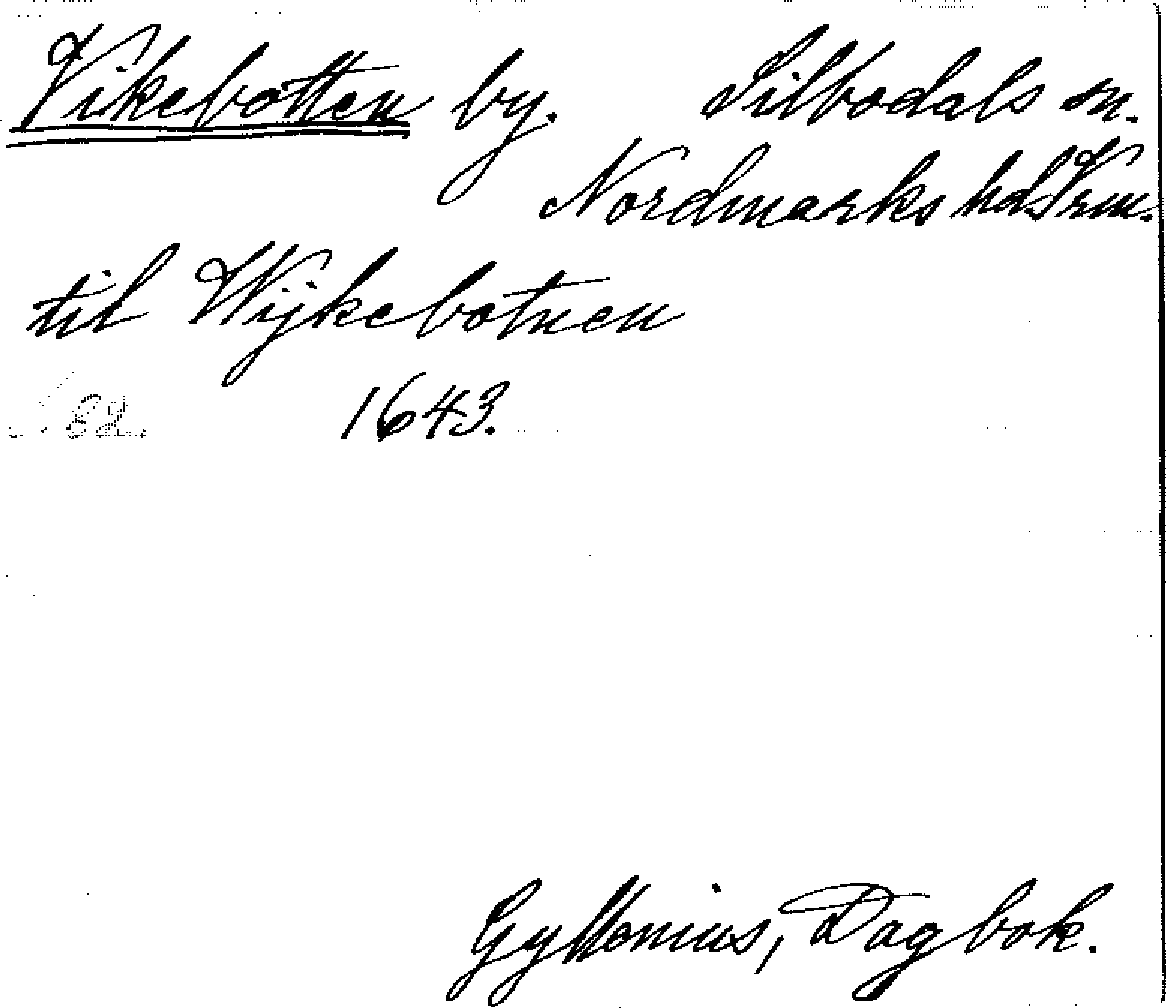 Vikebotten by. Silbodals sn.
Nordmarks hd. Vrm.
til Wijkebotnen
s. 82. 1643.
Gyllenius, Dagbok.